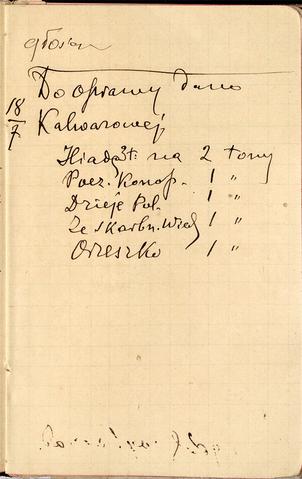 głosow
Do oprawy dano
18/7 Kalwarowej,
Iliadę 3t. na 2 tomy
Poez. Konop. 1 "
Dzieje Pol. 1 "
Ze skarbn. wied 1 "
Orzeszko 1 "